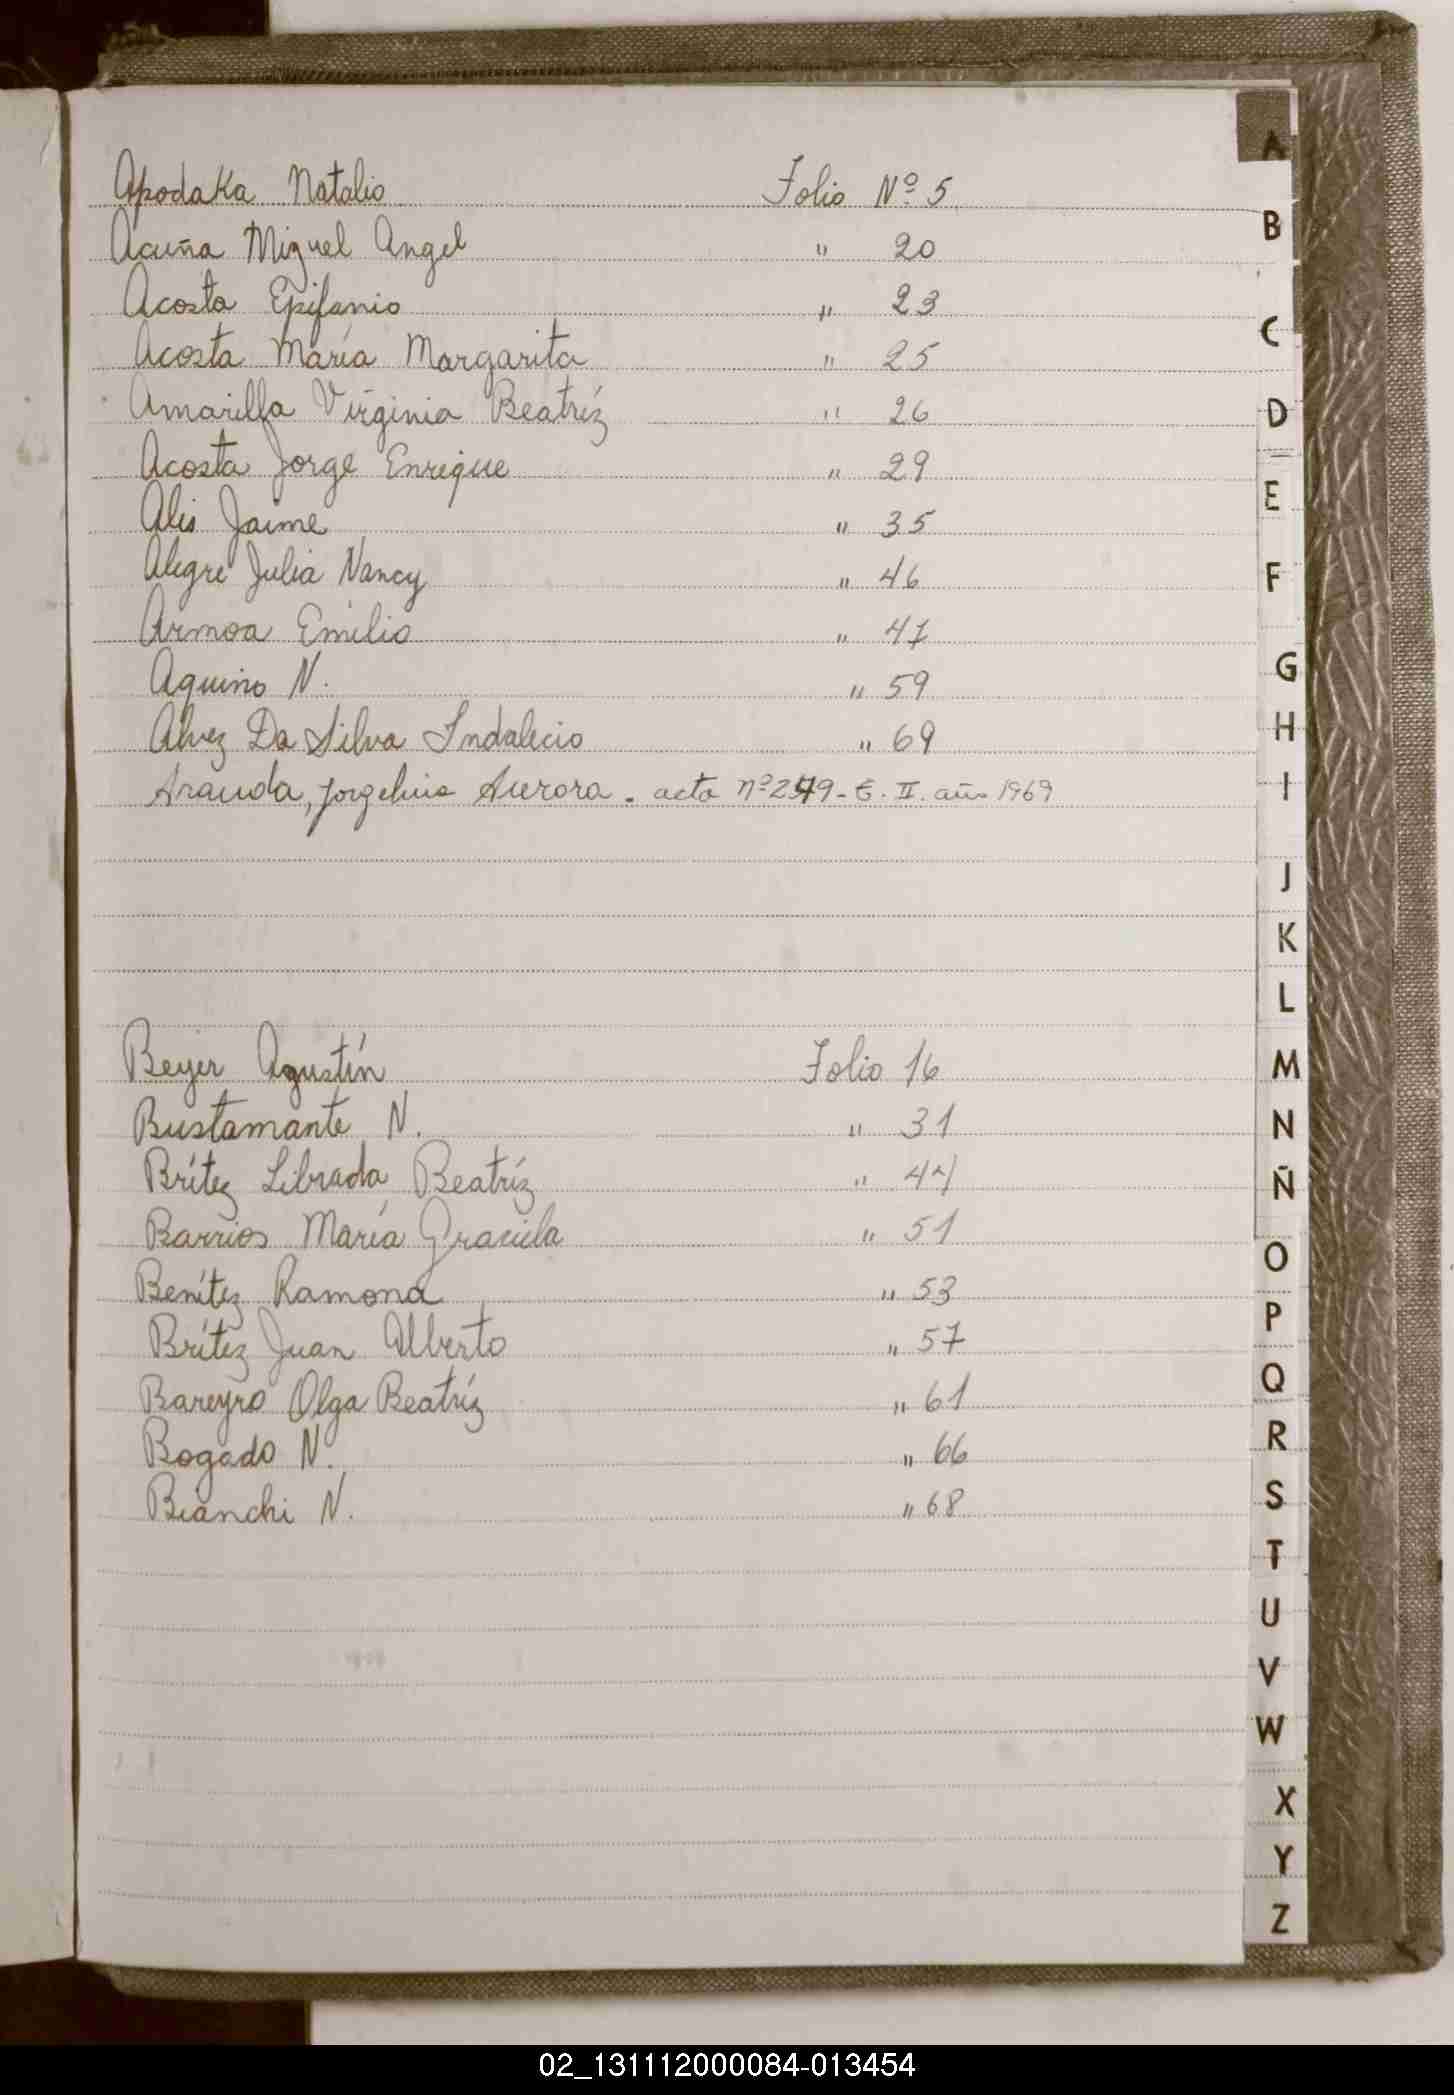 Apodaka Natalio Folio Nº 5
Acuña Miguel Angel " 20
Acosta Epifanio " 23
Acosta María Margarita " 25
Amarilla Virginia Beatríz " 26
Acosta Jorge Enrique " 29
Alis Jaime " 35
Alegre Julia Nancy " 46
Armoa Emilio " 47
Aquino N. " 59
Alvez Da Silva Indalecio " 69
Aranda, Jorgelina Aurora - acta nº 249 - t. II. año 1969
Beyer Agustín Folio 16
Bustamante N. " 31
Brítez Librada Beatríz " 44
Barrios María Graciela " 51
Benítez Ramona " 53
Brítez Juan Alberto " 57
Bareyro Olga Beatríz " 61
Bogado N. " 66
Bianchi N. " 68
A
B
C
D
E
F
G
H
I
J
K
L
M
N
Ñ
O
P
Q
R
S
T
U
V
W
X
Y
Z
02_131112000084-013454